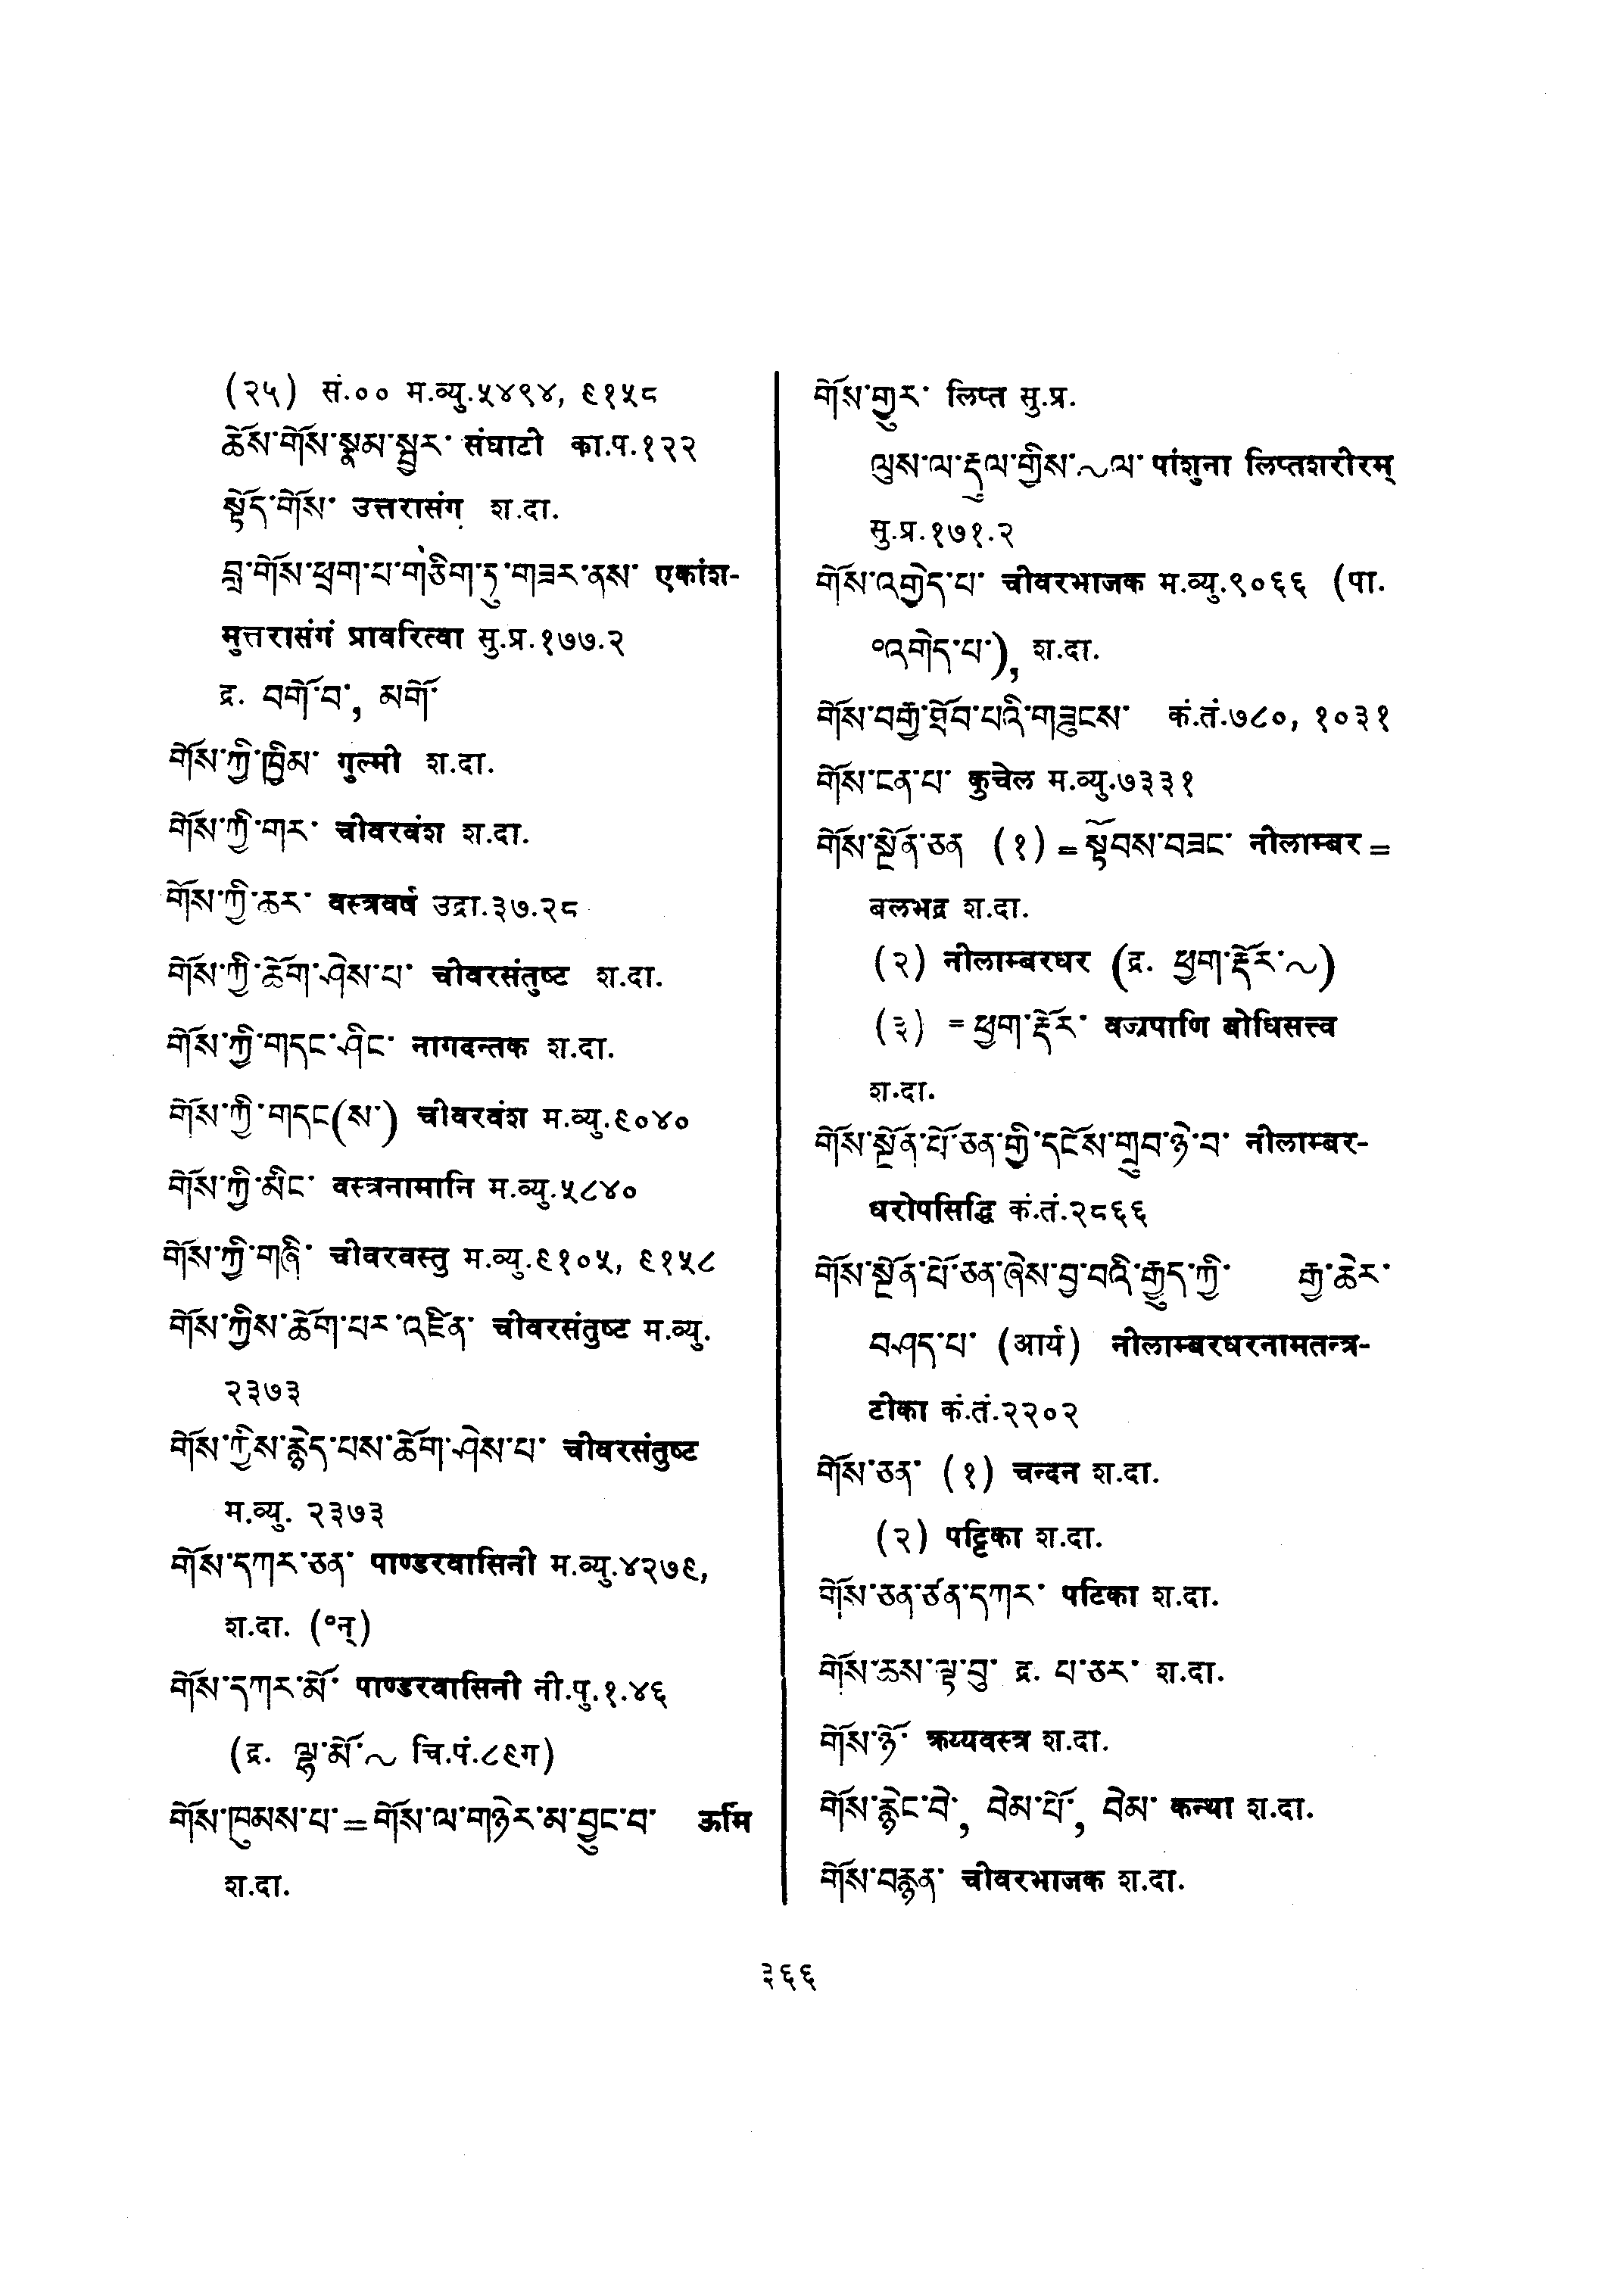 (२५) सं.०० म.व्यु.५४९४, ९१५८
ཆོས་གོས་སྣམ་སྦྱར་ संघाटी का.प.१२२
སྟོད་གོས་ उत्तरासंग श.दा.
བླ་གོས་ཕྲག་པ་གཅིག་ཏུ་གཟར་ནས་ एकांश-
मुत्तरासंगं प्रावरित्वा सु.प्र.१७७.२
द्र. བགོ་བ་, མགོ་
གོས་ཀྱི་ཁྲིམ་ गुल्मी श.दा.
གོས་ཀྱི་གར་ चीवरवंश श.दा.
གོས་ཀྱི་ཆར་ वस्त्रवर्ष उद्रा.३७.२८
གོས་ཀྱི་ཆོག་ཤེས་པ་ चीवरसंतुष्ट श.दा.
གོས་ཀྱི་གདང་ཤིང་ नागदन्तक श.दा.
གོས་ཀྱི་གདང(ས་) चीवरवंश म.व्यु.९०४०
གོས་ཀྱི་མིང་ वस्त्रनामानि म.व्यु.५८४०
གོས་ཀྱི་གཞི་ चीवरवस्तु म.व्यु.९१०५, ९१५८
གོས་ཀྱིས་ཆོག་པར་འཛིན་ चीवरसंतुष्ट म.व्यु.
२३७३
གོས་ཀྱིས་རྙེད་པས་ཆོག་ཤེས་པ་ चीवरसंतुष्ट
म.व्यु. २३७३
གོས་དཀར་ཅན་ पाण्डरवासिनी म.व्यु.४२७९,
श.दा. (°न्)
གོས་དཀར་མོ་ पाण्डरवासिनी नी.पु.१.४६
(द्र. ལྷ་མོ་~ चि.पं.८९ग)
གོས་ཁུམས་པ་=གོས་ལ་གཉེར་མ་བྱུང་བ་ ऊर्मि
श.दा.
གོས་གྱུར་ लिप्त सु.प्र.
ལུས་ལ་རྡུལ་གྱིས་~ལ་ पांशुना लिप्तशरीरम्
सु.प्र.१७१.२
གོས་འགྱེད་པ་ चीवरभाजक म.व्यु.९०६६ (पा.
°འགེད་པ་), श.दा.
གོས་བརྒྱ་ཐོབ་པའི་གཟུངས་ कं.तं.७८०, १०३१
གོས་ངན་པ་ कुचेल म.व्यु.७३३१
གོས་སྔོན་ཅན (१) = སྟོབས་བཟང་ नीलाम्बर =
बलभद्र श.दा.
(२) नीलाम्बरधर (द्र. ཕྱག་རྡོར་~)
(३) = ཕྱག་རྡོར་ वज्रपाणि बोधिसत्त्व
श.दा.
གོས་སྔོན་པོ་ཅན་གྱི་དངོས་གྲུབ་ཉེ་བ་ नीलाम्बर-
धरोपसिद्धि कं.तं.२८६६
གོས་སྔོན་པོ་ཅན་ཞེས་བྱ་བའི་རྒྱུད་ཀྱི་ རྒྱ་ཆེར་
བཤད་པ་ (आर्य) नीलाम्बरधरनामतन्त्र-
टीका कं.तं.२२०२
གོས་ཅན་ (१) चन्दन श.दा.
(२) पट्टिका श.दा.
གོས་ཅན་ཙན་དཀར་ पटिका श.दा.
གོས་ཆས་ལྟ་བུ་ द्र. པ་ཅར་ श.दा.
གོས་ཉོ་ क्रय्यवस्त्र श.दा.
གོས་རྙིང་བེ་, བེམ་པོ་, བེམ་ कन्था श.दा.
གོས་བརྙན་ चीवरभाजक श.दा.
३६६